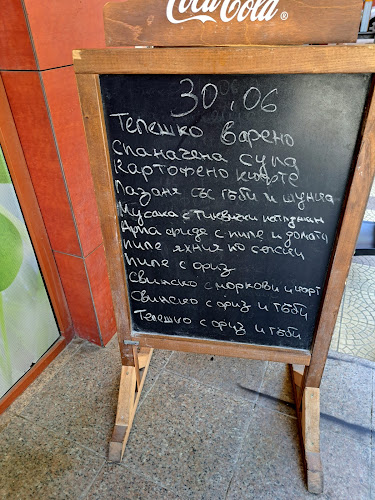 Coca-Cola®
30.06
Телешко варено
Спаначена супа
Картофено кюфте
Лазаня със гъби и шунка
Мусака с тиквички и патладжан
Арпа фиде с пиле и домати
Пиле яхния по селски
Пиле с ориз
Свинско с моркови и карт
Свинско с ориз и гъби
Телешко с ориз и гъби